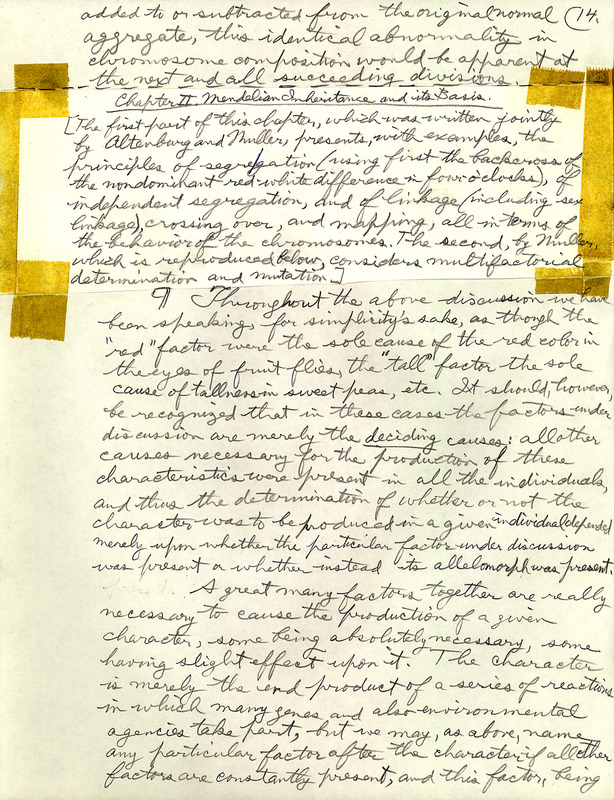 added to or subtracted from the original normal (14.
aggregate, this identical abnormality in
chromosome composition would be apparent at
the next and all succeeding divisions.
Chapter II Mendelian Inheritance and its Basis.
[The first part of this chapter, which was written jointly
by Altenburg and Muller, presents, with examples, the
principles of segregation (using first the backcross of
the nondominant red-white difference in four o'clocks), of
independent segregation, and of linkage (including sex
linkage), crossing over, and mapping, all in terms of
the behavior of the chromosomes. The second, by Muller,
which is reproduced below, considers multifactorial
determination and mutation.]
¶ Throughout the above discussion we have
been speaking, for simplicity's sake, as though the
"red" factor were the sole cause of the red color in
the eyes of fruit flies, the "tall" factor the sole
cause of tallness in sweet peas, etc. It should, however,
be recognized that in these cases the factors under
discussion are merely the deciding causes: all other
causes necessary for the production of these
characteristics were present in all the individuals,
and thus the determination of whether or not the
character was to be produced in a given individual depended
merely upon whether the particular factor under discussion
was present or whether instead its allelomorph was present.
A great many factors together are really
necessary to cause the production of a given
character, some being absolutely necessary, some
having slight effect upon it. The character
is merely the end product of a series of reactions
in which many genes and also environmental
agencies take part, but we may, as above, name
any particular factor after the character if all other
factors are constantly present, and this factor, being